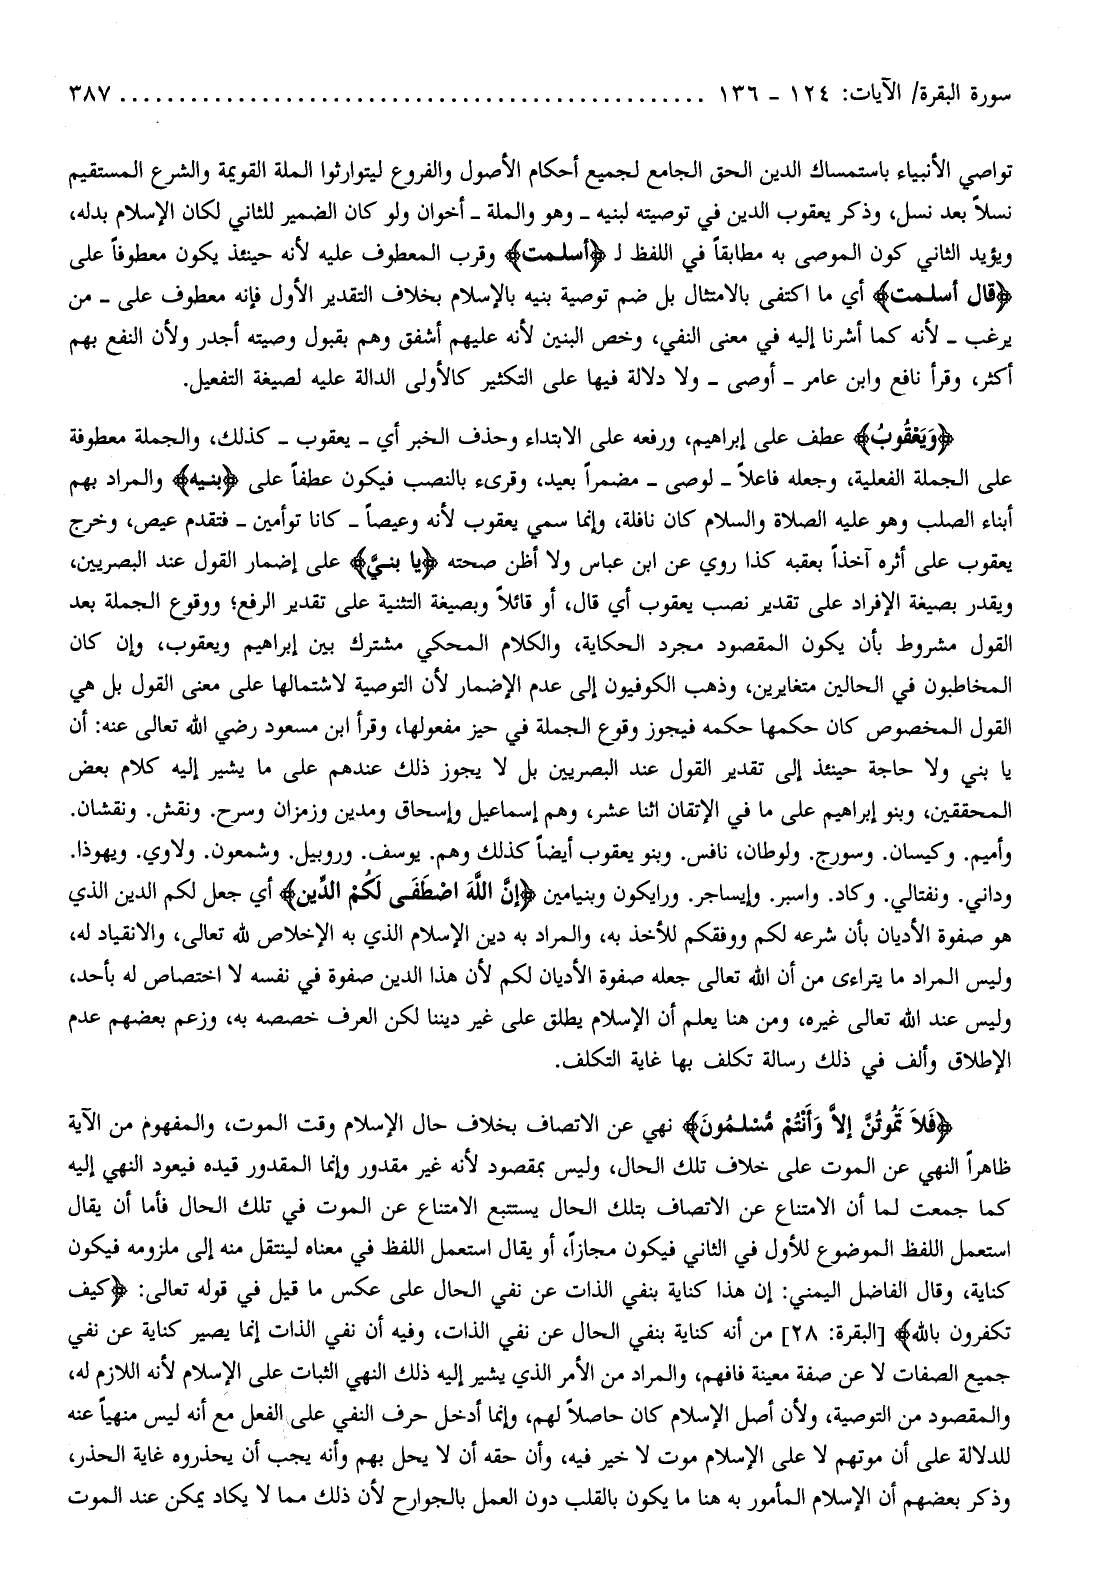 سورة البقرة/ الآيات: ١٢٤ ـ ١٣٦ ................................................. ٣٨٧
تواصي الأنبياء باستمساك الدين الحق الجامع لجميع أحكام الأصول والفروع ليتوارثوا الملة القويمة والشرع المستقيم
نسلاً بعد نسل، وذكر يعقوب الدين في توصيته لبنيه ـ وهو والملة ـ أخوان ولو كان الضمير للثاني لكان الإسلام بدله،
ويؤيد الثاني كون الموصى به مطابقاً في اللفظ لـ ﴿أسلمت﴾ وقرب المعطوف عليه لأنه حينئذ يكون معطوفاً على
﴿قال أسلمت﴾ أي ما اكتفى بالامتثال بل ضم توصية بنيه بالإسلام بخلاف التقدير الأول فإنه معطوف على ـ من
يرغب ـ لأنه كما أشرنا إليه في معنى النفي، وخص البنين لأنه عليهم أشفق وهم بقبول وصيته أجدر ولأن النفع بهم
أكثر، وقرأ نافع وابن عامر ـ أوصى ـ ولا دلالة فيها على التكثير كالأولى الدالة عليه لصيغة التفعيل.
﴿وَيَعْقُوبُ﴾ عطف على إبراهيم، ورفعه على الابتداء وحذف الخبر أي ـ يعقوب ـ كذلك، والجملة معطوفة
على الجملة الفعلية، وجعله فاعلاً ـ لوصى ـ مضمراً بعيد، وقرىء بالنصب فيكون عطفاً على ﴿بنيه﴾ والمراد بهم
أبناء الصلب وهو عليه الصلاة والسلام كان نافلة، وإنما سمي يعقوب لأنه وعيصاً ـ كانا توأمين ـ فتقدم عيص، وخرج
يعقوب على أثره آخذاً بعقبه كذا روي عن ابن عباس ولا أظن صحته ﴿يا بنيَّ﴾ على إضمار القول عند البصريين،
ويقدر بصيغة الإفراد على تقدير نصب يعقوب أي قال، أو قائلاً وبصيغة التثنية على تقدير الرفع؛ ووقوع الجملة بعد
القول مشروط بأن يكون المقصود مجرد الحكاية، والكلام المحكي مشترك بين إبراهيم ويعقوب، وإن كان
المخاطبون في الحالين متغايرين، وذهب الكوفيون إلى عدم الإضمار لأن التوصية لاشتمالها على معنى القول بل هي
القول المخصوص كان حكمها حكمه فيجوز وقوع الجملة في حيز مفعولها، وقرأ ابن مسعود رضي الله تعالى عنه: أن
يا بني ولا حاجة حينئذ إلى تقدير القول عند البصريين بل لا يجوز ذلك عندهم على ما يشير إليه كلام بعض
المحققين، وبنو إبراهيم على ما في الإتقان اثنا عشر، وهم إسماعيل وإسحاق ومدين وزمزان وسرح. ونقش. ونقشان.
وأميم. وكيسان. وسورج. ولوطان، نافس. وبنو يعقوب أيضاً كذلك وهم. يوسف. وروبيل. وشمعون. ولاوي. ويهوذا.
وداني. ونفتالي. وكاد. واسبر. وإيساجر. ورايكون وبنيامين ﴿إِنَّ اللَّهَ اصْطَفَى لَكُمُ الدِّين﴾ أي جعل لكم الدين الذي
هو صفوة الأديان بأن شرعه لكم ووفقكم للأخذ به، والمراد به دين الإسلام الذي به الإخلاص لله تعالى، والانقياد له،
وليس المراد ما يتراءى من أن الله تعالى جعله صفوة الأديان لكم لأن هذا الدين صفوة في نفسه لا اختصاص له بأحد،
وليس عند الله تعالى غيره، ومن هنا يعلم أن الإسلام يطلق على غير ديننا لكن العرف خصصه به، وزعم بعضهم عدم
الإطلاق وألف في ذلك رسالة تكلف بها غاية التكلف.
﴿فَلاَ تَمُوتُنَّ إلاَّ وَأَنْتُمْ مُّسْلمُونَ﴾ نهي عن الاتصاف بخلاف حال الإسلام وقت الموت، والمفهوم من الآية
ظاهراً النهي عن الموت على خلاف تلك الحال، وليس بمقصود لأنه غير مقدور وإنما المقدور قيده فيعود النهي إليه
كما جمعت لما أن الامتناع عن الاتصاف بتلك الحال يستتبع الامتناع عن الموت في تلك الحال فأما أن يقال
استعمل اللفظ الموضوع للأول في الثاني فيكون مجازاً، أو يقال استعمل اللفظ في معناه لينتقل منه إلى ملزومه فيكون
كناية، وقال الفاضل اليمني: إن هذا كناية بنفي الذات عن نفي الحال على عكس ما قيل في قوله تعالى: ﴿كيف
تكفرون بالله﴾ [البقرة: ٢٨] من أنه كناية بنفي الحال عن نفي الذات، وفيه أن نفي الذات إنما يصير كناية عن نفي
جميع الصفات لا عن صفة معينة فافهم، والمراد من الأمر الذي يشير إليه ذلك النهي الثبات على الإسلام لأنه اللازم له،
والمقصود من التوصية، ولأن أصل الإسلام كان حاصلاً لهم، وإنما أدخل حرف النفي على الفعل مع أنه ليس منهياً عنه
للدلالة على أن موتهم لا على الإسلام موت لا خير فيه، وأن حقه أن لا يحل بهم وأنه يجب أن يحذروه غاية الحذر،
وذكر بعضهم أن الإسلام المأمور به هنا ما يكون بالقلب دون العمل بالجوارح لأن ذلك مما لا يكاد يمكن عند الموت